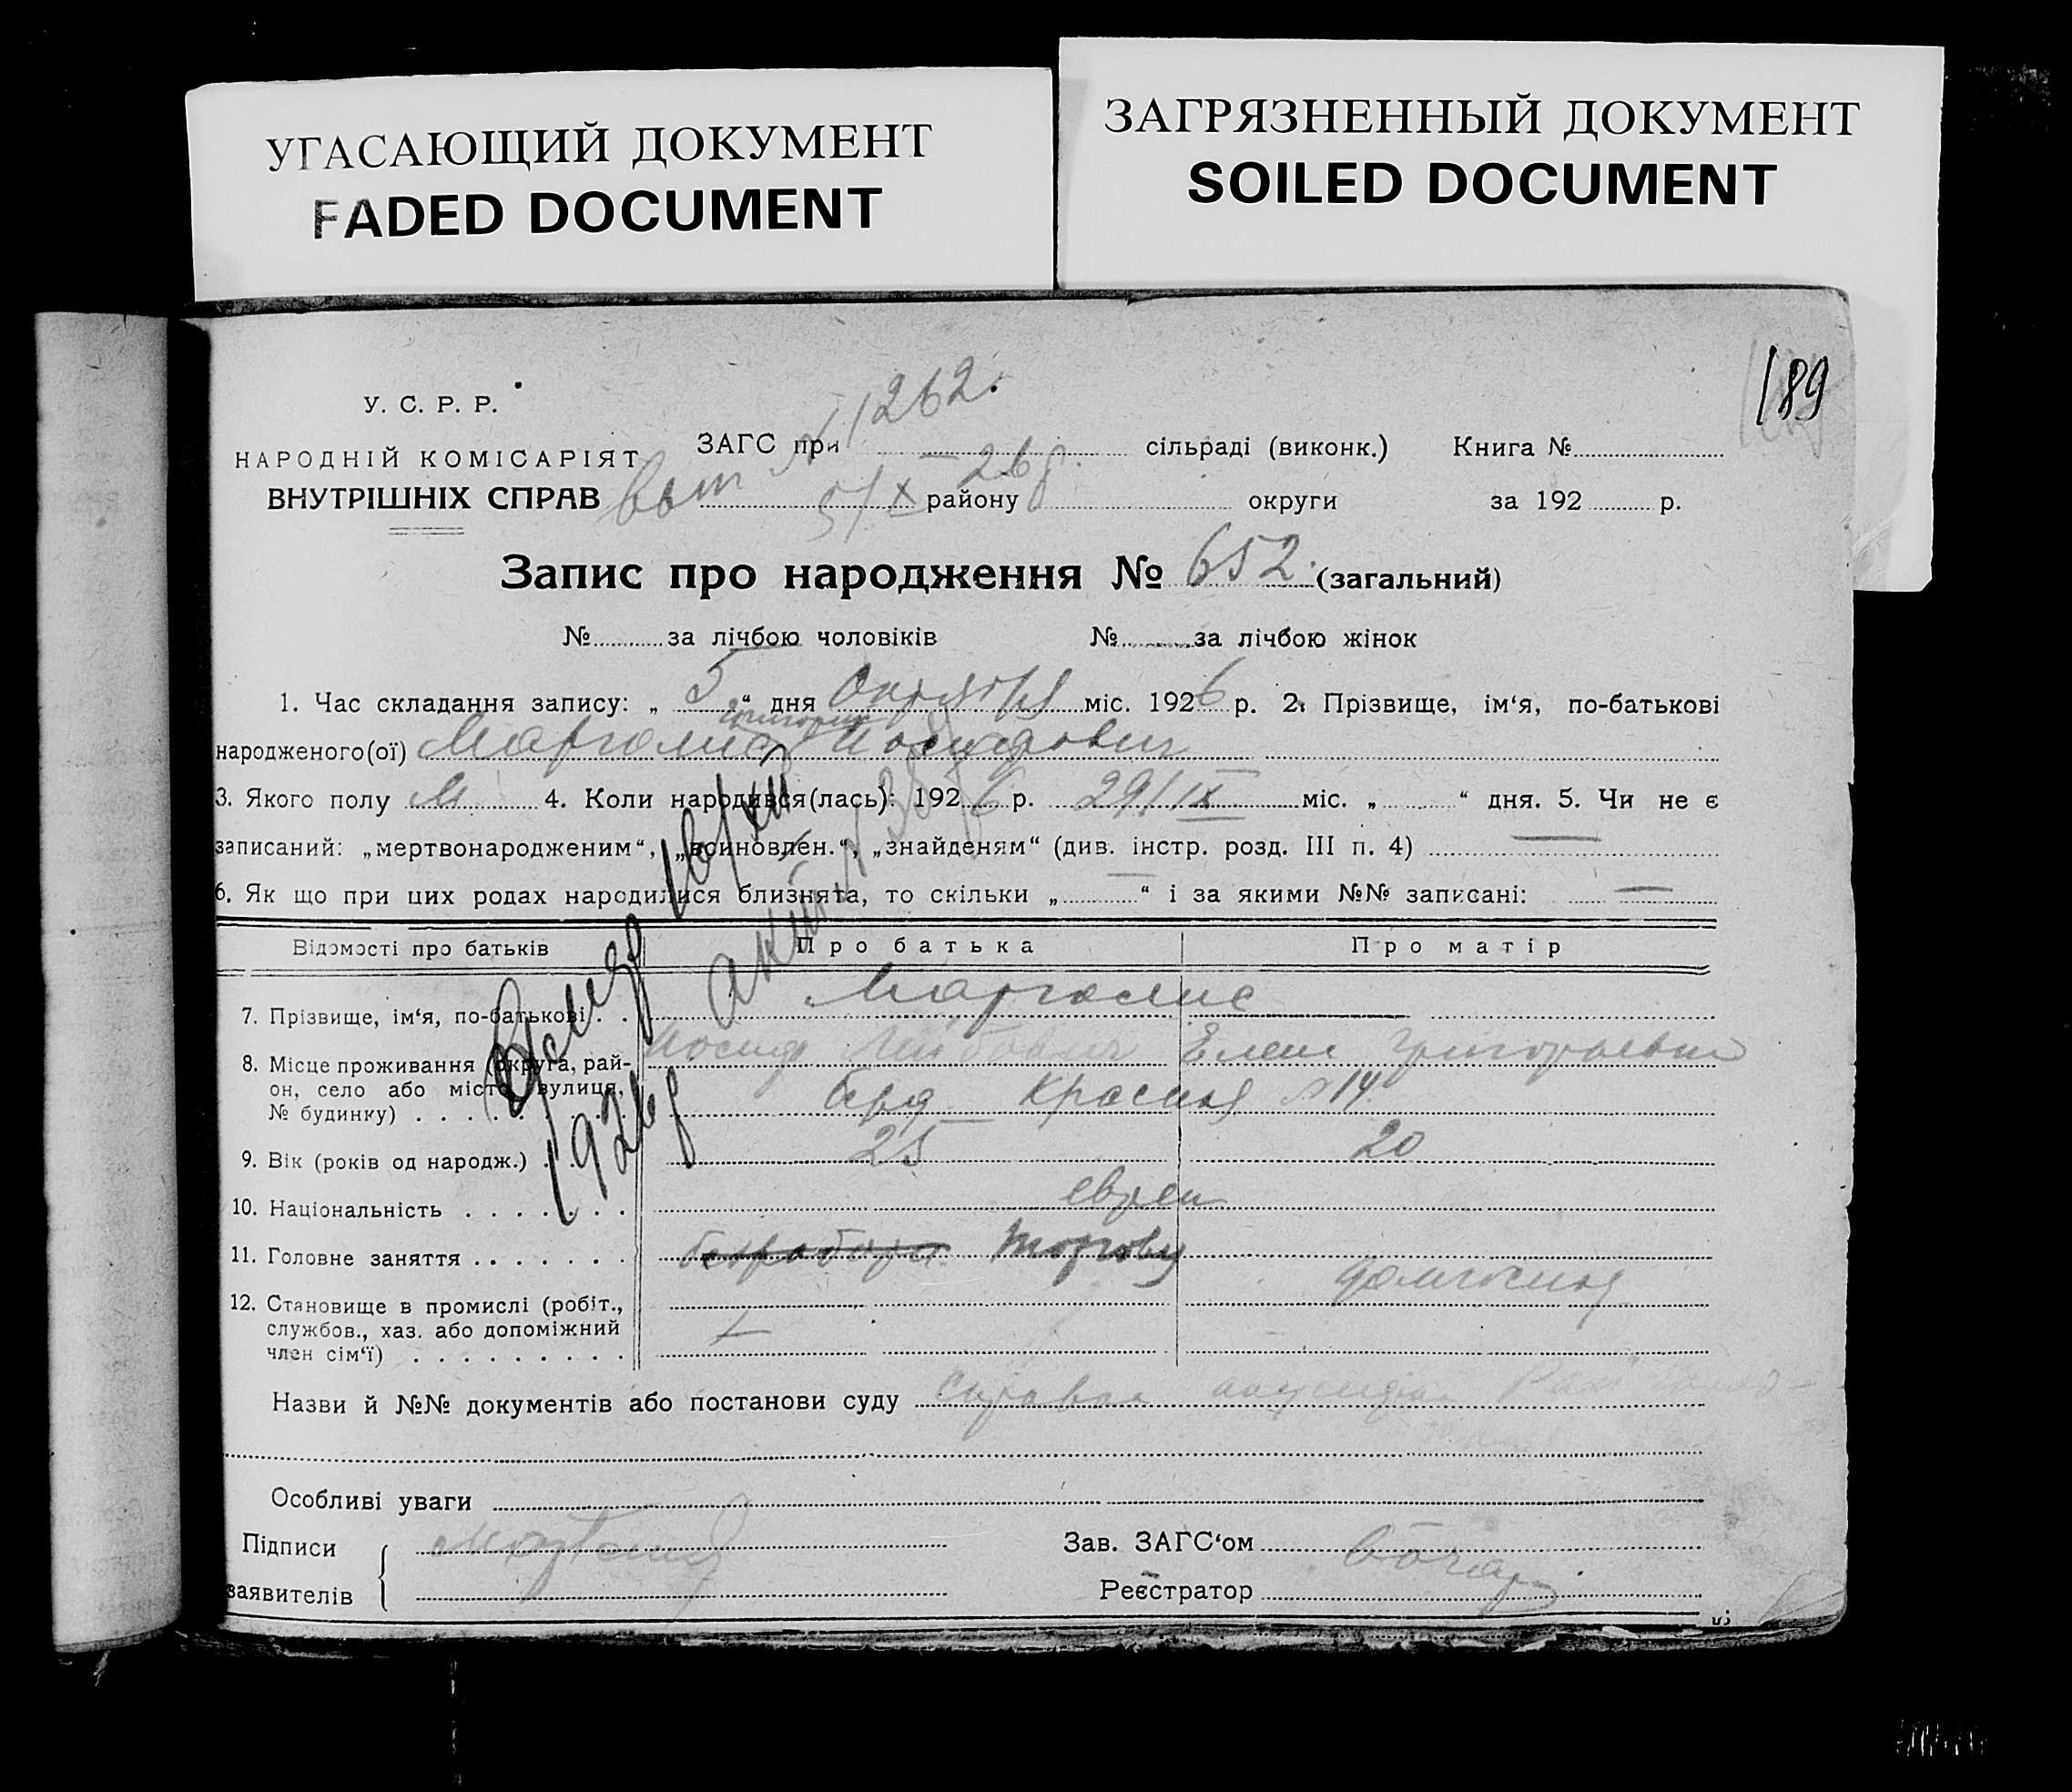 УГАСАЮЩИЙ ДОКУМЕНТ
FADED DOCUMENT
ЗАГРЯЗНЕННЫЙ ДОКУМЕНТ
SOILED DOCUMENT
189
У. С. Р. Р.
НАРОДНІЙ КОМІСАРІЯТ
ВНУТРІШНІХ СПРАВ
ЗАГС при сільраді (виконк.) Книга №
району округи за 192 р.
№ 1262.
5/X 26 г.
Запис про народження № 652. (загальний)
№ за лічбою чоловіків № за лічбою жінок
1. Час складання запису: „ 5 “ дня Октября міс. 1926 р. 2. Прізвище, ім‘я, по-батькові
Григорий
народженого(ої) Марголис Иосифович
3. Якого полу М 4. Коли народився(лась): 1926 р. 29/IX міс. „ “ дня. 5. Чи не є
записаний: „мертвонародженим“, „всиновлен.“, „знайденям“ (див. інстр. розд. III п. 4) —
6. Як що при цих родах народилися близнята, то скільки „ “ і за якими №№ записані: —
Відомості про батьків Про батька Про матір
7. Прізвище, ім‘я, по-батькові . . Марголис
Иосиф Елена Григорьевна
8. Місце проживання (округа, рай-
он, село або місто, вулиця,
№ будинку) . . . . . Красная № 14
9. Вік (років од народж.) . . . 25 20
10. Національність . . . . . . . евреи
11. Головне заняття . . . . . . . торговц
домохоз
12. Становище в промислі (робіт.,
службов., хаз. або допоміжний
член сім‘ї) . . . . . . . . .
1926 г
Назви й №№ документів або постанови суду Справка
Особливі уваги
Підписи
заявителів
Зав. ЗАГС‘ом
Реєстратор